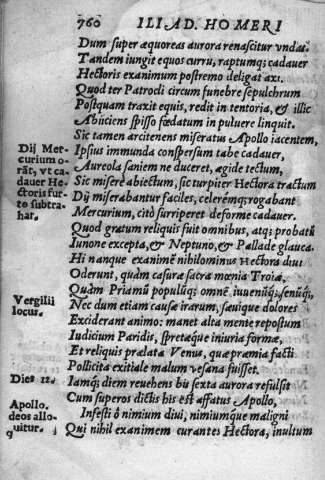 760 ILIAD. HOMERI
Dum super æquoreas aurora renascitur undas:
Tandem iungit equos curru, raptumq; cadauer
Hectoris exanimum postremo deligat axi.
Quod ter Patrocli circum funebre sepulchrum
Postquam traxit equis, redit in tentoria, & illic
Abijciens spisso fœdatum in puluere linquit.
Sic tamen arcitenens miseratus Apollo iacentem,
Dij Mer-
curium o-
rāt, vt ca-
dauer He-
ctoris fur-
to subtra-
hat.
Ipsius immunda conspersum tabe cadauer,
Aureola saniem ne duceret, ægide tectum,
Sic misere abiectum, sic turpiter Hectora tractum
Dij miserabantur faciles, celeremq; rogabant
Mercurium, citò surriperet deforme cadauer.
Quod gratum reliquis fuit omnibus, atq; probatū
Iunone excepta, & Neptuno, & Pallade glauca.
Hi nanque exanimē nihilominus Hectora diui
Oderunt, quàm casuræ sacra mœnia Troiæ.
Quàm Priamū populūq; omnē iuuenūq; senūq;,
Vergilii
locus.
Nec dum etiam causæ irarum, sæuique dolores
Exciderant animo: manet alta mente repostum
Iudicium Paridis, spretæque iniuria formæ,
Et reliquis prælata Venus, quæ præmia facti
Pollicita exitiale malum vesana fuisset.
Dies 12.
Iamq; diem reuehens bis sexta aurora refulsit
Cum superos dictis his est affatus Apollo,
Apollo.
deos allo-
quitur.
Infesti ô nimium diui, nimiumque maligni
Qui nihil exanimem curantes Hectora, inultum